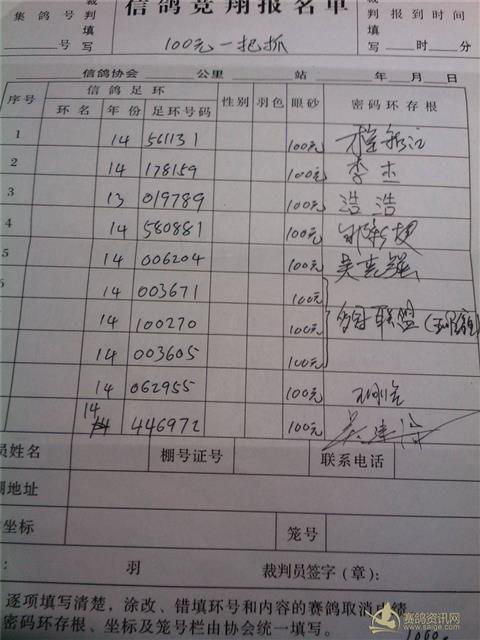 信鸽竞翔报名单
集鸽号 裁判填写 裁判填写 报到时间
号 时 分
100元一把抓
信鸽协会 公里 站 年 月 日
序号 信鸽足环 性别 羽色 眼砂 密码环存根
环名 年份 足环号码
1 14 561131 100元
2 14 178159 100元 李杰
3 13 019789 100元 浩浩
4 14 580881 100元
5 14 006204 100元
14 003671 100元
14 100270 100元 联盟
14 003605 100元
14 062955 100元
14 446972 100元
员姓名 棚号证号 联系电话
棚地址
坐标 笼号
: 羽 裁判员签字(章):
逐项填写清楚,涂改、错填环号和内容的赛鸽取消成绩
密码环存根、坐标及笼号栏由协会统一填写。
赛鸽资讯网
www.saige.com